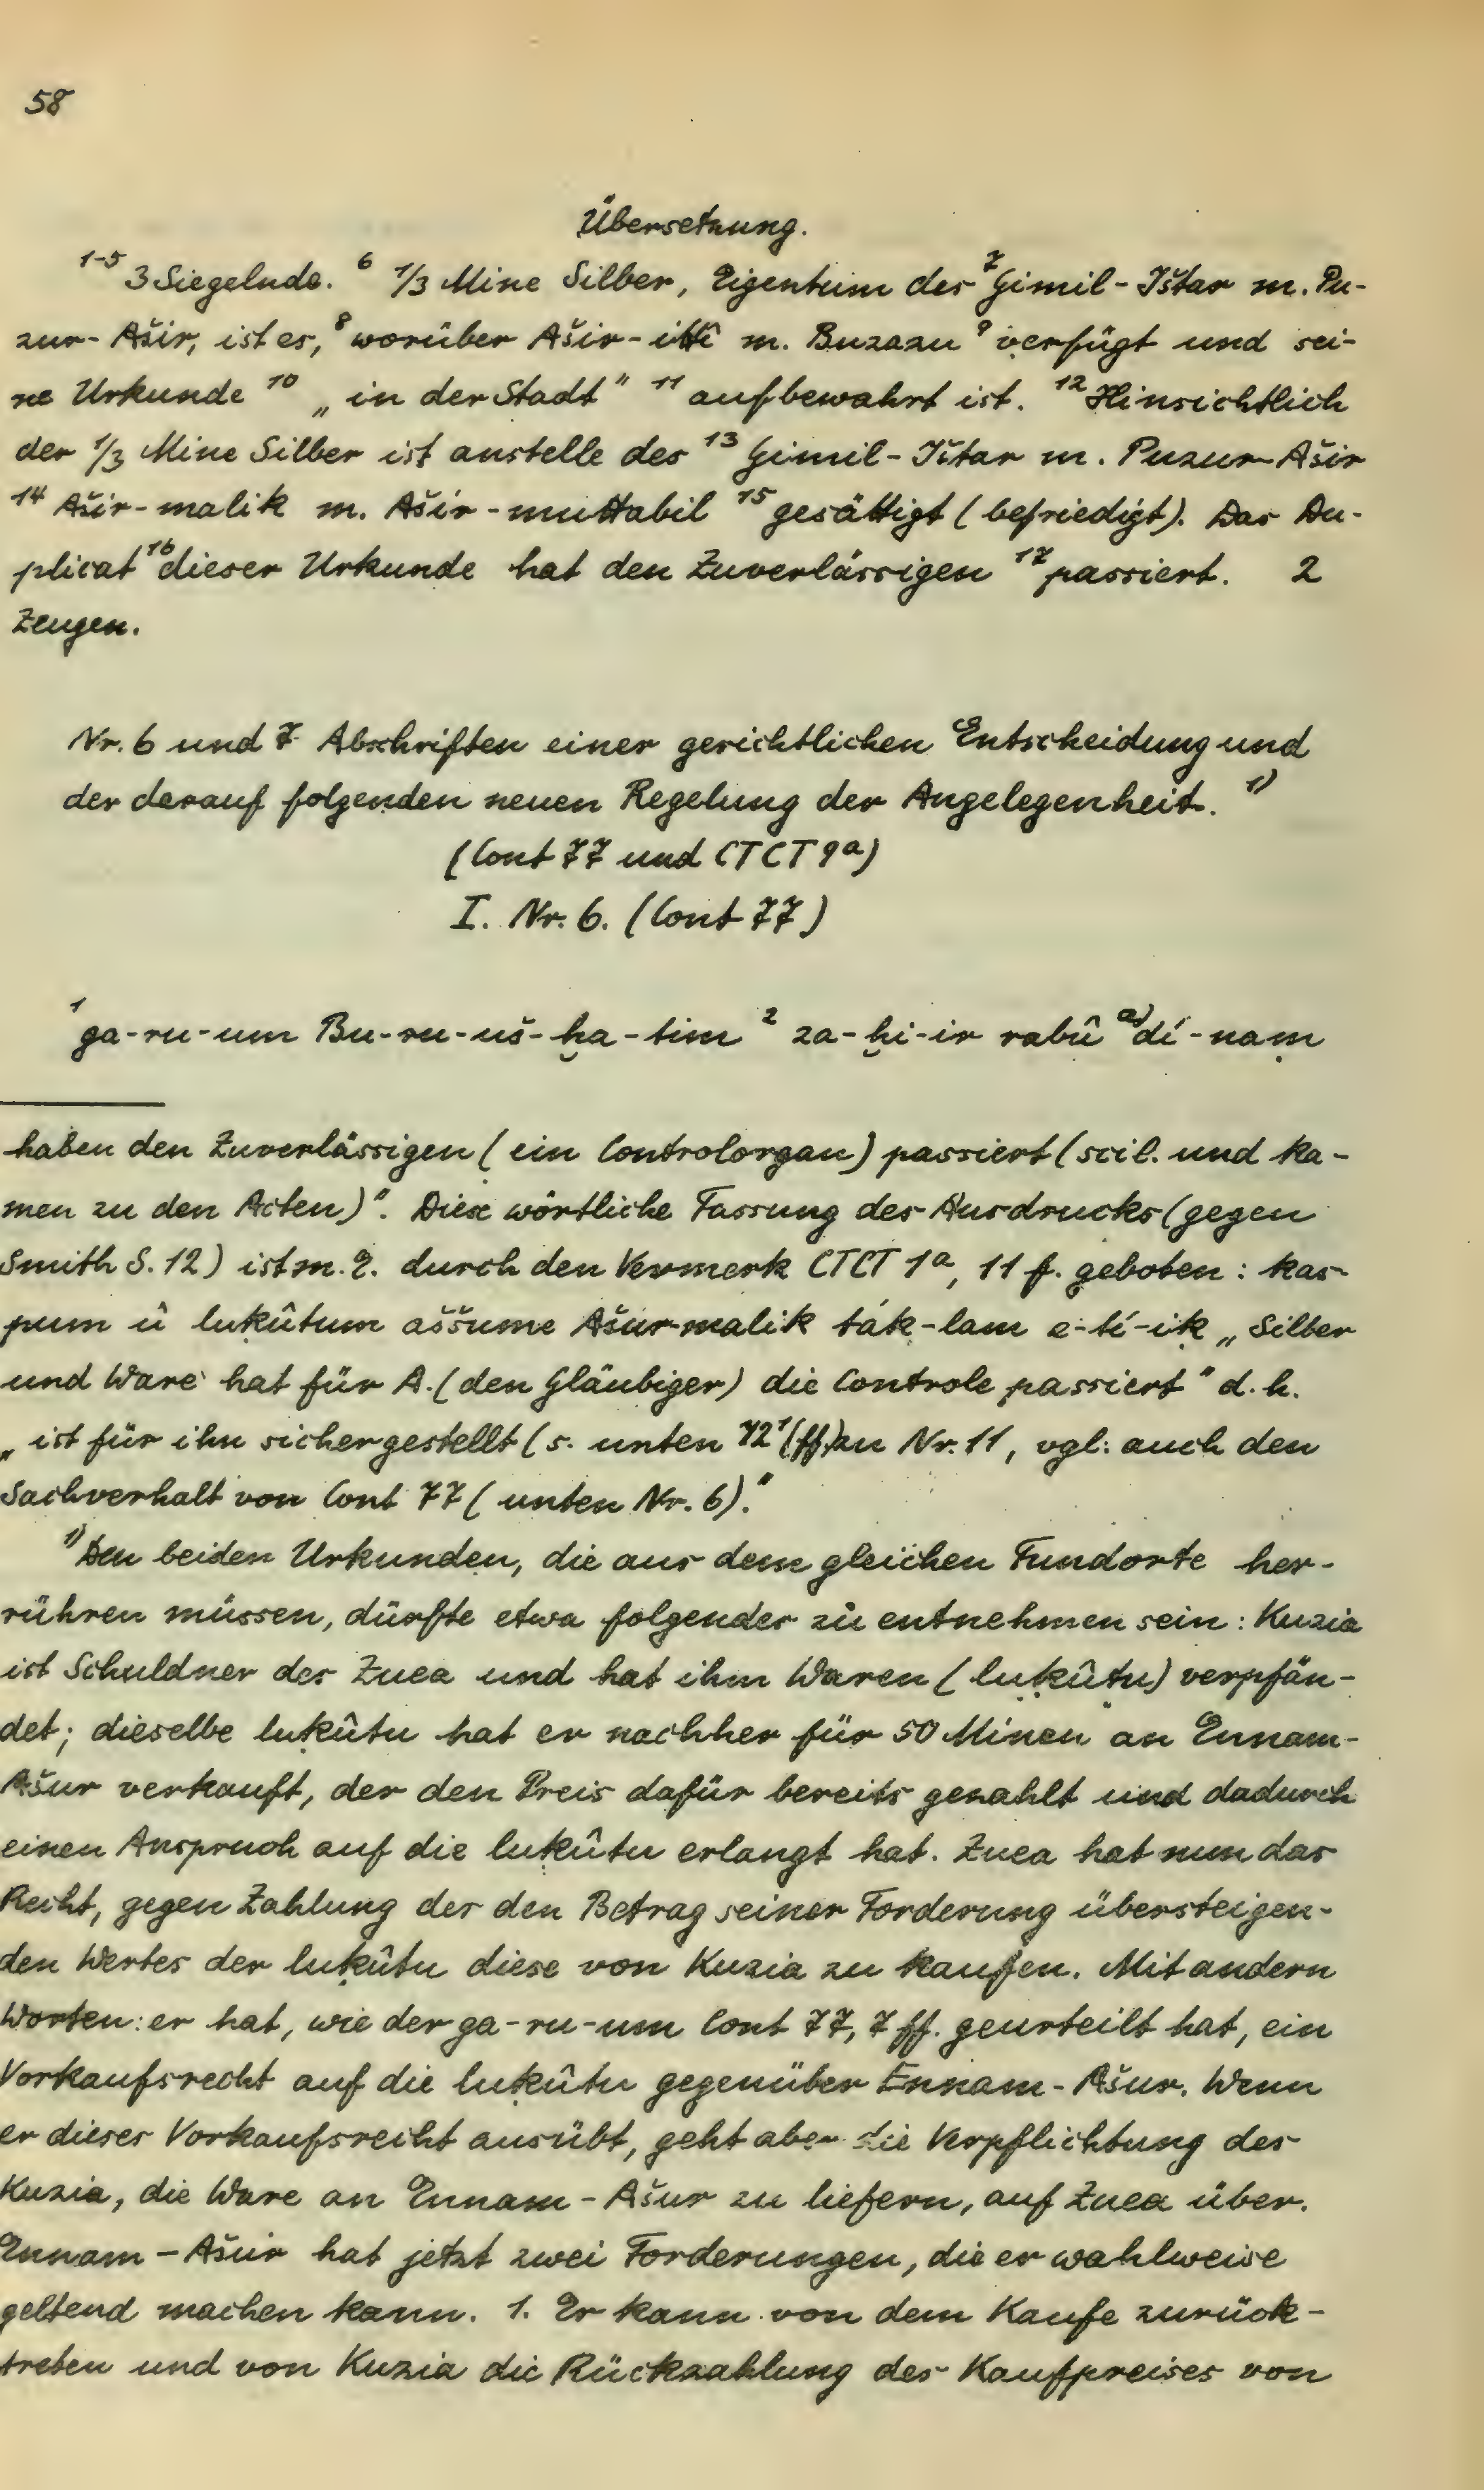 58
Übersetzung.
1-5 3 Siegelnde. 6 1/3 Mine Silber, Eigentum des 7 Gimil-Ištar m. Pu-
zur-Ašir, ist es, 8 worüber Ašir-ittî m. Buzazu 9 verfügt und sei-
ne Urkunde 10 „in der Stadt" 11 aufbewahrt ist. 12 Hinsichtlich
der 1/3 Mine Silber ist anstelle des 13 Gimil-Ištar m. Puzur-Ašir
14 Ašir-malik m. Ašir-muttabil 15 gesättigt (befriedigt). Das Du-
plicat 16 dieser Urkunde hat den Zuverlässigen 17 passiert. 2
Zeugen.
Nr. 6 und 7 Abschriften einer gerichtlichen Entscheidung und
der darauf folgenden neuen Regelung der Angelegenheit. 1)
(Cont 77 und CTCT 9a)
I. Nr. 6. (Cont 77)
1 ga-ru-um Bu-ru-uš-ḫa-tim 2 za-ḫi-ir rabû a) dí-nam
haben den Zuverlässigen (ein Controlorgan) passiert (scil. und ka-
men zu den Acten)". Diese wörtliche Fassung des Ausdrucks (gegen
Smith S. 12) ist m. E. durch den Vermerk CTCT 1a, 11 f. geboten: kas-
pum û luḳûtum aššume Ašur-malik ták-lam e-tí-iḳ „Silber
und Ware hat für A. (den Gläubiger) die Controle passiert" d. h.
„ist für ihn sichergestellt (s. unten 72 1 (ff) zu Nr. 11, vgl. auch den
Sachverhalt von Cont 77 (unten Nr. 6)."
1) Den beiden Urkunden, die aus dem gleichen Fundorte her-
rühren müssen, dürfte etwa folgendes zu entnehmen sein: Kuzia
ist Schuldner des Zuea und hat ihm Waren (luḳûtu) verpfän-
det; dieselbe luḳûtu hat er nachher für 50 Minen an Ennam-
Ašur verkauft, der den Preis dafür bereits gezahlt und dadurch
einen Anspruch auf die luḳûtu erlangt hat. Zuea hat nun das
Recht, gegen Zahlung des den Betrag seiner Forderung übersteigen-
den Wertes der luḳûtu diese von Kuzia zu kaufen. Mit andern
Worten: er hat, wie der ga-ru-um Cont 77, 7 ff. geurteilt hat, ein
Vorkaufsrecht auf die luḳûtu gegenüber Ennam-Ašur. Wenn
er dieses Vorkaufsrecht ausübt, geht aber die Verpflichtung des
Kuzia, die Ware an Ennam-Ašur zu liefern, auf Zuea über.
Ennam-Ašur hat jetzt zwei Forderungen, die er wahlweise
geltend machen kann. 1. Er kann von dem Kaufe zurück-
treten und von Kuzia die Rückzahlung des Kaufpreises von